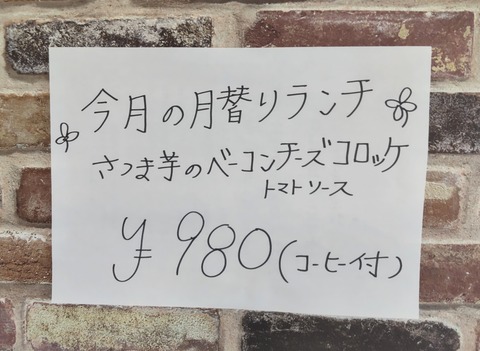 今月の月替りランチ
さつま芋のベーコンチーズコロッケ
トマトソース
¥980(コーヒー付)